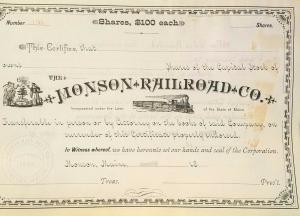 Shares, $100 each
Number
Shares.
This Certifies that
owns Shares of the Capital Stock of
THE
MONSON RAILROAD CO.
Incorporated under the Laws of the State of Maine
Transferable in person or by Attorney on the books of said Company, on
surrender of this Certificate properly endorsed.
In Witness whereof, we have hereunto set our hands and seal of the Corporation.
Monson, Maine, 18
Treas. Pres't.